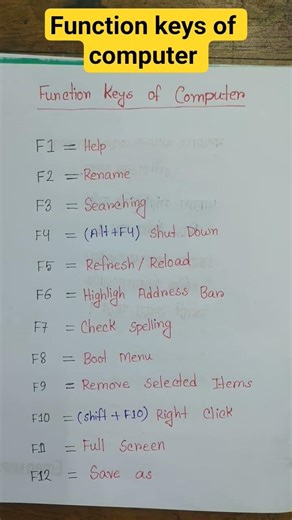 Function keys of
computer
Function Keys of Computer
F1 = Help
F2 = Rename
F3 = Searching
F4 = (Alt+F4) Shut Down
F5 = Refresh/Reload
F6 = Highligh Address Bar
F7 = Check Spelling
F8 = Boot Menu
F9 = Remove Selected Items
F10 = (Shift + F10) Right Click
F11 = Full Screen
F12 = Save as